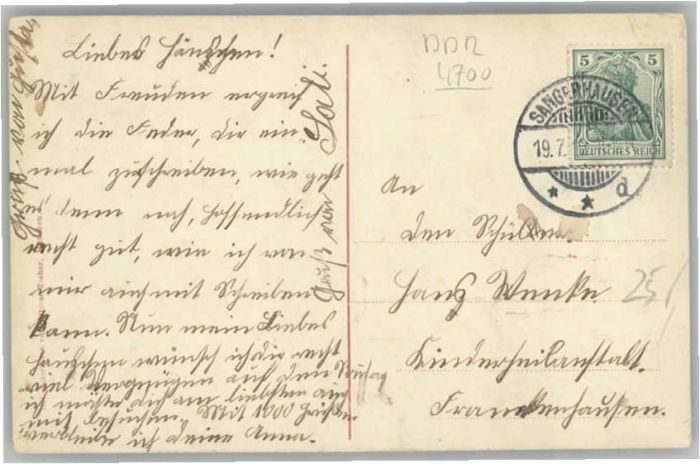 Liebes Hänschen!
Mit Freuden ergreif
ich die Feder, dir ein-
mal zuschreiben, wie geht
es denn noch, hoffendlich
recht gut, wie ich von
mir auch mit Schreiben
kann. Nun mein Liebes
Hänschen wünsch ich dir recht
viel vergnügen auf den Sontag
ich möchte dich am liebsten auch
mit besuchen. Mit 1000 Grüßen
verbleibe ich deine Anna.
Gruß von
Gruß von
DDR
4700
5 5
DEUTSCHES REICH
SANGERHAUSEN
19.7.
* * d
An
den Schüler
Hans Wenke
25,
Kinderheilanstalt.
Frankenhausen.